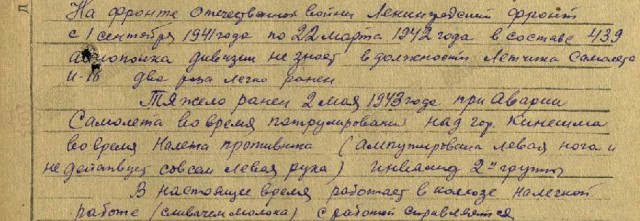 На фронте Отечественной войны Ленинградский фронт
с 1 сентября 1941 года по 22 марта 1942 года в составе 439
авиополка дивизии не знает в должности Летчика Самолета
И-16 два раза легко ранен
Тяжело ранен 2 мая 1943 года при Аварии
Самолета во время патрулирования над гор. Кинешма
во время Налета противника (ампутирована левая нога и
не действует совсем левая рука) инвалид 2й группы
В настоящее время работает в колхозе на легкой
работе (сливачем молока) с работой справляется